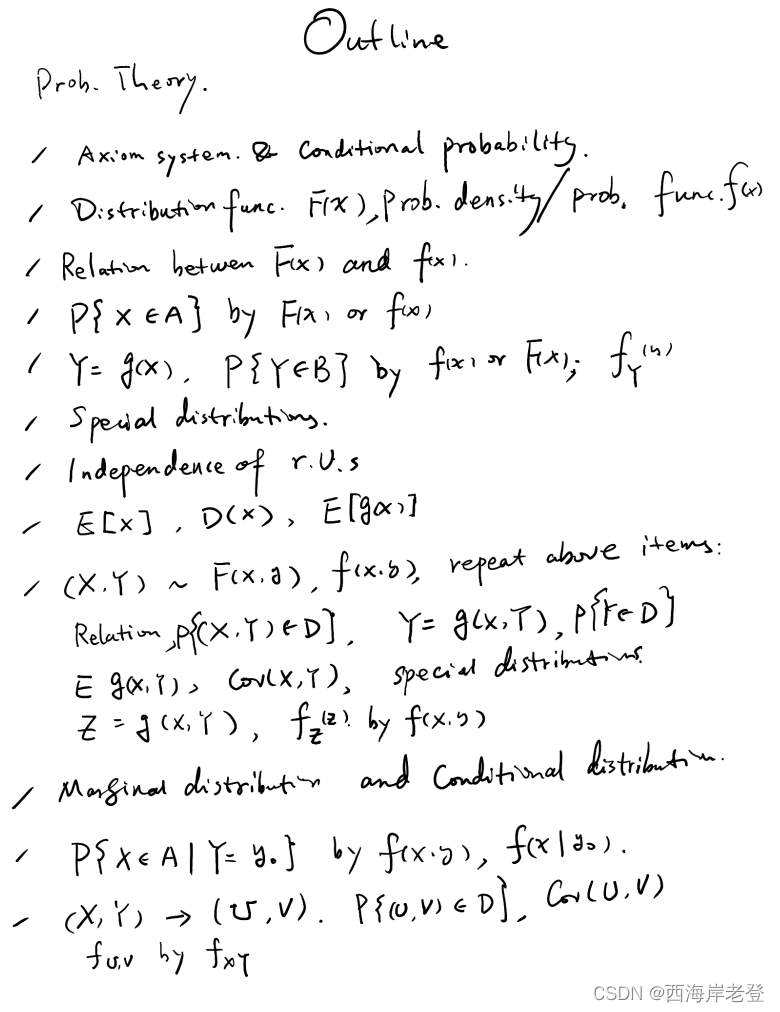 Outline
Prob. Theory.
/ Axiom system. & Conditional probability.
/ Distribution func. F(x), Prob. density/prob. func. f(x)
/ Relation betwen F(x) and f(x).
/ P{X∈A} by F(x) or f(x)
/ Y= g(x), P{Y∈B} by f(x) or F(x); f_Y(y)
/ Special distributions.
/ Independence of r.v.s
/ E[X], D(X), E[g(x)]
/ (X,Y) ~ F(x,y), f(x,y), repeat above items:
Relation, P{(X,Y)∈D}, Y= g(X,Y), P{Y∈D}
E g(X,Y), Cov(X,Y), special distributions.
Z = g(X,Y), f_Z(z) by f(x,y)
/ Marginal distribution and Conditional distribution.
/ P{X∈A|Y=y₀} by f(x,y), f(x|y₀).
/ (X,Y) → (U,V). P{(U,V)∈D}, Cov(U,V)
f_{U,V} by f_{XY}
CSDN @西海岸老登